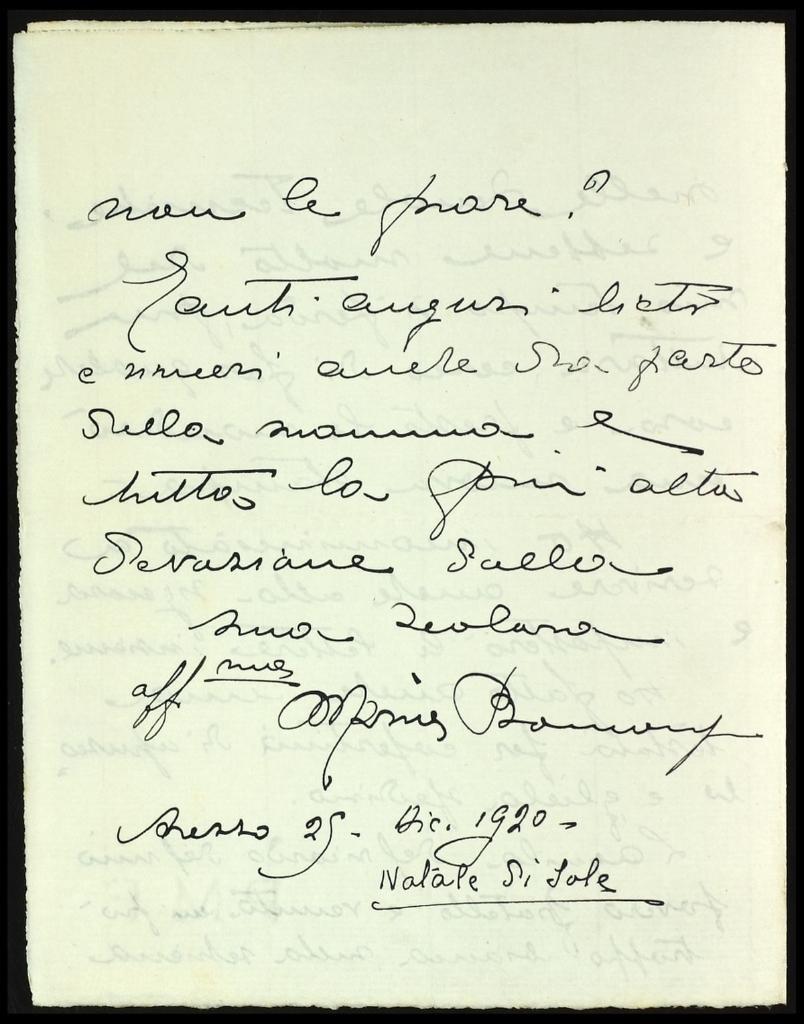 non le pare?
Tanti auguri lieti
e sinceri anche da parte
della mamma e
tutta la più alta
devozione dalla
sua scolara
aff ma Maria
Arezzo 25. Dic. 1920 -
Natale di sole